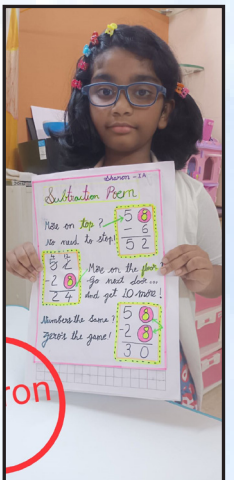 Sharon - 2A
Subtraction Poem
More on top?
No need to stop!
5 8
- 6
5 2
- 2 8
2 4
More on the floor?
Go next door...
And get 10 more!
Numbers the same?
Zero's the game!
5 8
- 2 8
3 0
ron